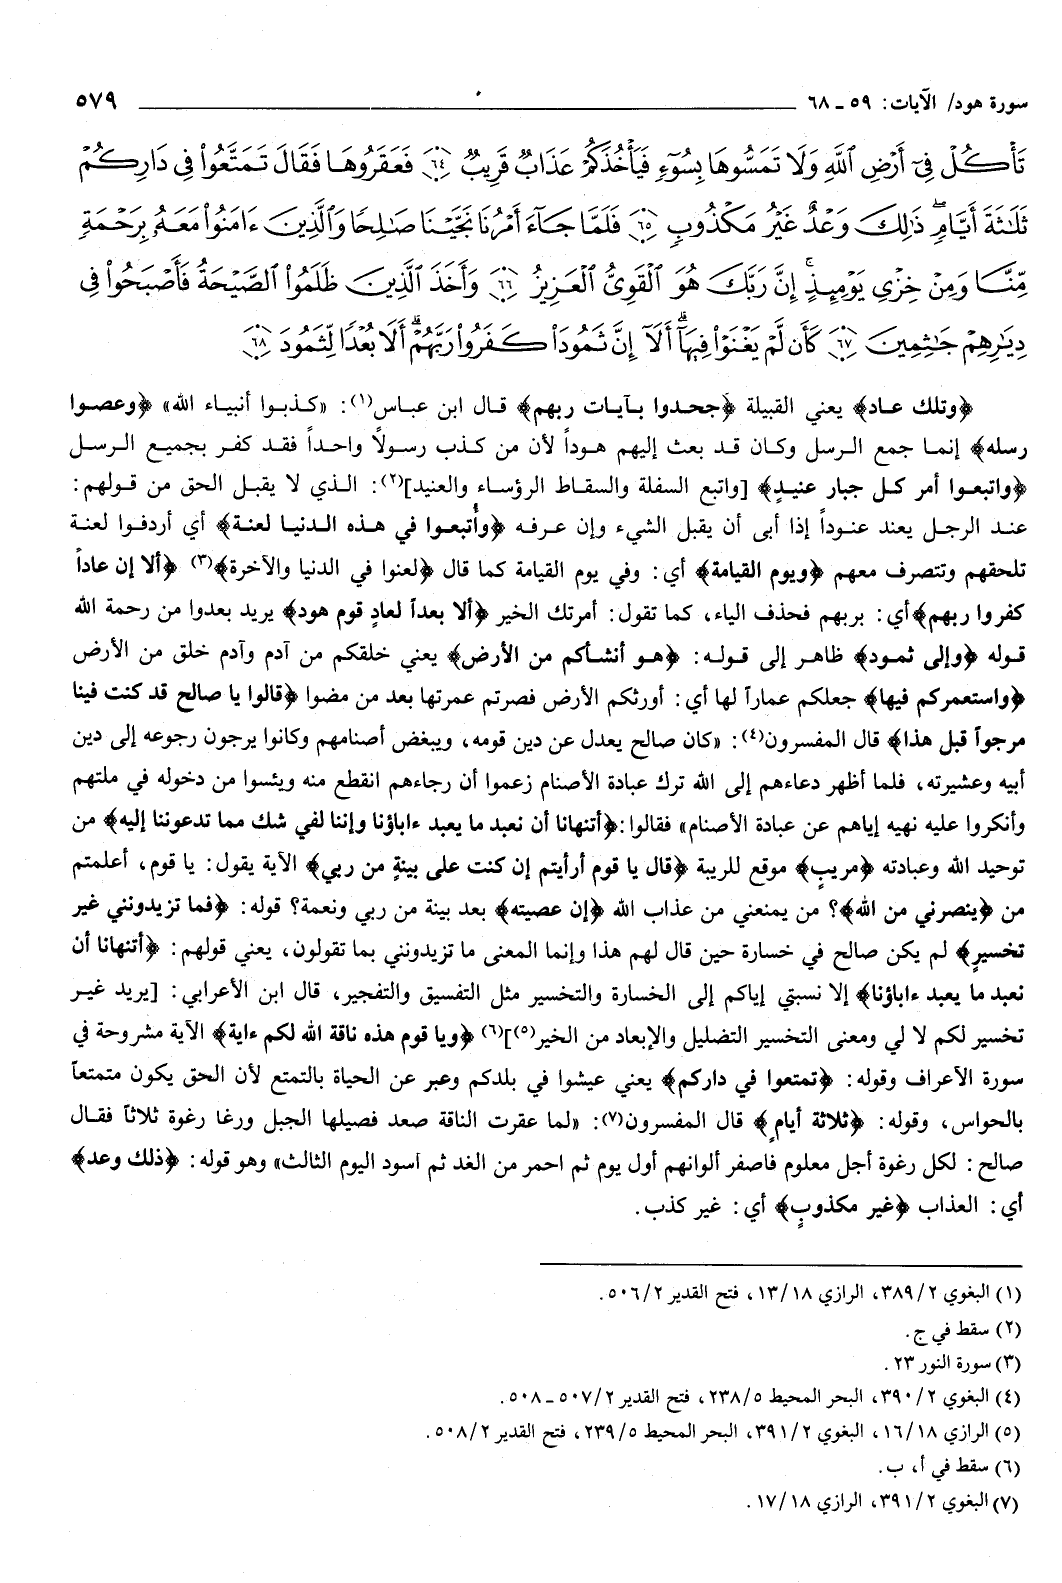 سورة هود/ الآيات: ٥٩ ـ ٦٨ ٥٧٩
تَأْكُلْ فِىٓ أَرْضِ ٱللَّهِ وَلَا تَمَسُّوهَا بِسُوٓءٍ فَيَأْخُذَكُمْ عَذَابٌ قَرِيبٌ ﴿٦٤﴾ فَعَقَرُوهَا فَقَالَ تَمَتَّعُوا۟ فِى دَارِكُمْ
ثَلَٰثَةَ أَيَّامٍۖ ذَٰلِكَ وَعْدٌ غَيْرُ مَكْذُوبٍ ﴿٦٥﴾ فَلَمَّا جَآءَ أَمْرُنَا نَجَّيْنَا صَٰلِحًا وَٱلَّذِينَ ءَامَنُوا۟ مَعَهُۥ بِرَحْمَةٍ
مِّنَّا وَمِنْ خِزْىِ يَوْمِئِذٍۚ إِنَّ رَبَّكَ هُوَ ٱلْقَوِىُّ ٱلْعَزِيزُ ﴿٦٦﴾ وَأَخَذَ ٱلَّذِينَ ظَلَمُوا۟ ٱلصَّيْحَةُ فَأَصْبَحُوا۟ فِى
دِيَٰرِهِمْ جَٰثِمِينَ ﴿٦٧﴾ كَأَن لَّمْ يَغْنَوْا۟ فِيهَآۗ أَلَآ إِنَّ ثَمُودَا۟ كَفَرُوا۟ رَبَّهُمْۗ أَلَا بُعْدًا لِّثَمُودَ ﴿٦٨﴾
﴿وتلك عاد﴾ يعني القبيلة ﴿جحدوا بآيات ربهم﴾ قال ابن عباس(١): «كذبوا أنبياء الله» ﴿وعصوا
رسله﴾ إنما جمع الرسل وكان قد بعث إليهم هوداً لأن من كذب رسولاً واحداً فقد كفر بجميع الرسل
﴿واتبعوا أمر كل جبار عنيدٍ﴾ [واتبع السفلة والسقاط الرؤساء والعنيد](٢): الذي لا يقبل الحق من قولهم:
عند الرجل يعند عنوداً إذا أبى أن يقبل الشيء وإن عرفه ﴿وأُتبعوا في هذه الدنيا لعنة﴾ أي أردفوا لعنة
تلحقهم وتتصرف معهم ﴿ويوم القيامة﴾ أي: وفي يوم القيامة كما قال ﴿لعنوا في الدنيا والآخرة﴾(٣) ﴿ألا إن عاداً
كفروا ربهم﴾أي: بربهم فحذف الياء، كما تقول: أمرتك الخير ﴿ألا بعداً لعادٍ قوم هود﴾ يريد بعدوا من رحمة الله
قوله ﴿وإلى ثمود﴾ ظاهر إلى قوله: ﴿هو أنشأكم من الأرض﴾ يعني خلقكم من آدم وآدم خلق من الأرض
﴿واستعمركم فيها﴾ جعلكم عماراً لها أي: أورثكم الأرض فصرتم عمرتها بعد من مضوا ﴿قالوا يا صالح قد كنت فينا
مرجواً قبل هذا﴾ قال المفسرون(٤): «كان صالح يعدل عن دين قومه، ويبغض أصنامهم وكانوا يرجون رجوعه إلى دين
أبيه وعشيرته، فلما أظهر دعاءهم إلى الله ترك عبادة الأصنام زعموا أن رجاءهم انقطع منه ويئسوا من دخوله في ملتهم
وأنكروا عليه نهيه إياهم عن عبادة الأصنام» فقالوا:﴿أتنهانا أن نعبد ما يعبد ءاباؤنا وإننا لفي شك مما تدعوننا إليه﴾ من
توحيد الله وعبادته ﴿مريبٍ﴾ موقع للريبة ﴿قال يا قوم أرأيتم إن كنت على بينةٍ من ربي﴾ الآية يقول: يا قوم، أعلمتم
من ﴿ينصرني من الله﴾؟ من يمنعني من عذاب الله ﴿إن عصيته﴾ بعد بينة من ربي ونعمة؟ قوله: ﴿فما تزيدونني غير
تخسيرٍ﴾ لم يكن صالح في خسارة حين قال لهم هذا وإنما المعنى ما تزيدونني بما تقولون، يعني قولهم: ﴿أتنهانا أن
نعبد ما يعبد ءاباؤنا﴾ إلا نسبتي إياكم إلى الخسارة والتخسير مثل التفسيق والتفجير، قال ابن الأعرابي: [يريد غير
تخسير لكم لا لي ومعنى التخسير التضليل والإبعاد من الخير(٥)](٦) ﴿ويا قوم هذه ناقة الله لكم ءاية﴾ الآية مشروحة في
سورة الأعراف وقوله: ﴿تمتعوا في داركم﴾ يعني عيشوا في بلدكم وعبر عن الحياة بالتمتع لأن الحق يكون متمتعاً
بالحواس، وقوله: ﴿ثلاثة أيامٍ﴾ قال المفسرون(٧): «لما عقرت الناقة صعد فصيلها الجبل ورغا رغوة ثلاثاً فقال
صالح: لكل رغوة أجل معلوم فاصفر ألوانهم أول يوم ثم احمر من الغد ثم اسود اليوم الثالث» وهو قوله: ﴿ذلك وعد﴾
أي: العذاب ﴿غير مكذوبٍ﴾ أي: غير كذب.
(١) البغوي ٣٨٩/٢، الرازي ١٣/١٨، فتح القدير ٥٠٦/٢.
(٢) سقط في ج.
(٣) سورة النور ٢٣.
(٤) البغوي ٣٩٠/٢، البحر المحيط ٢٣٨/٥، فتح القدير ٥٠٧/٢ ـ ٥٠٨.
(٥) الرازي ١٦/١٨، البغوي ٣٩١/٢، البحر المحيط ٢٣٩/٥، فتح القدير ٥٠٨/٢.
(٦) سقط في أ، ب.
(٧) البغوي ٣٩١/٢، الرازي ١٧/١٨.